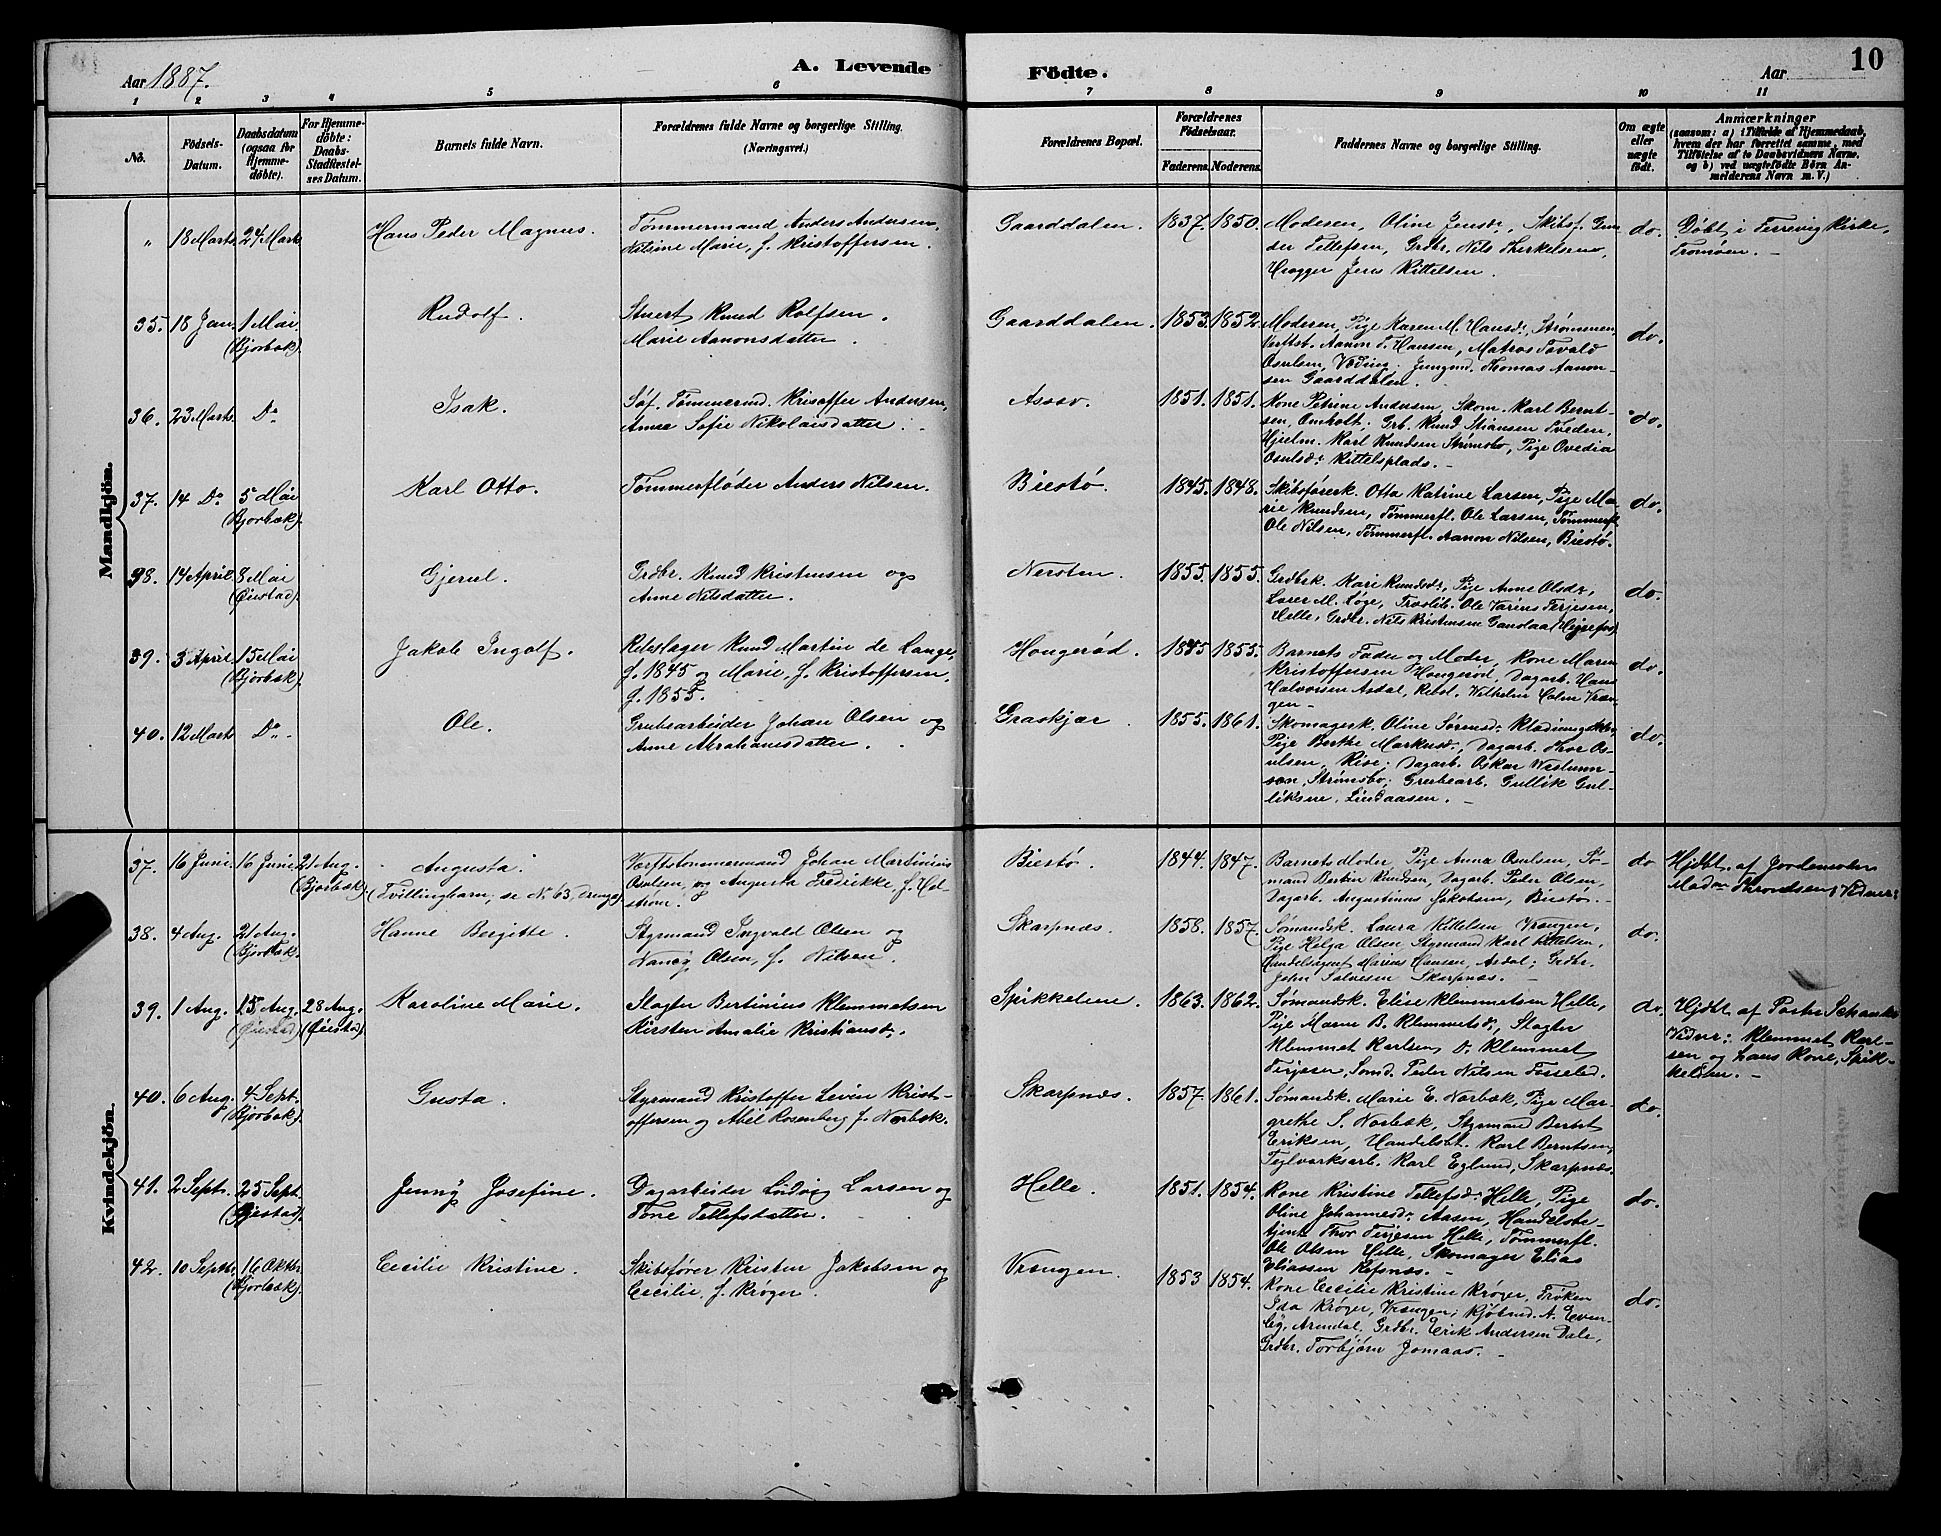 10
Aar 1887.
A. Levende
Födte.
Aar
1 2 3 4 5 6
7 8 9 10 11
No.
Födsels-
Datum.
Daabsdatum
(ogsaa for
Hjemme-
døbte).
For Hjemme-
døbte:
Daabs-
Stadfæstel-
ses Datum.
Barnets fulde Navn.
Forældrenes fulde Navne og borgerlige Stilling.
(Næringsvei.)
Forældrenes Bopæl.
Forældrenes
Födselsaar.
Faderens. Moderens.
Faddernes Navne og borgerlige Stilling.
Om ægte
eller
uægte
født.
Anmærkninger
(saasom: a) i Tilfælde af Hjemmedaab,
hvem der har forrettet samme, med
Tilføielse af to Daabsvidners Navne,
og b) ved uægtefödte Börn An-
melderens Navn m. V.)
Mandkjön.
" 18 Marts 24 Marts
Hans Peder Magnus.
Tømmermand Anders Andersen,
Nilsine Marie, f. Kristoffersen.
Gaarddalen. 1837. 1850.
Moderen, Oline Jensdr, Skibsf. Gun-
der Tellefsen, Grdbr. Nils Therkelsen,
Hugger Jens Kittelsen.
do.
Døbt i Færvig Kirke,
Tromøen. -
35. 18 Jan. 1 Mai
(Bjorbæk).
Rudolf.
Stuert Knud Rolfsen.
Marie Aanonsdatter.
Gaarddalen. 1853. 1852.
Moderen, Pige Karen M. Hansdr, Strømmen,
Værftsb. Aanon S. Hansen, Matros Tovald
Osulsen, Væding; Jungmd. Thomas Aanon-
sen Gaarddalen.
do.
36. 23 Marts. Do
Isak.
Søf. Tømmermd. Kristoffer Andersen,
Anna Sofie Nikolaisdatter.
Assev. 1851. 1851.
Kone Petrine Andersen, Skom. Karl Bernt-
sen, Omholt; Grb. Knud Stiansen Tveden,
Hjelm. Karl Knudsen Strømsbo, Pige Ovedia
Osulsdr. Kittelsplads. -
do.
37. 14 Do 5 Mai
(Bjorbæk).
Karl Otto.
Tømmerfløder Anders Nilsen.
Biestø. 1845. 1848.
Skibsførerk. Otta Katrine Larsen, Pige Ma-
rie Knudsen, Tømmerfl. Ole Larsen, Tømmerfl.
Ole Nilsen, Tømmerfl. Aanon Nilsen, Biestø.
do.
38. 14 April. 8 Mai
(Øiestad).
Gjerul.
Grdbr. Knud Kristensen og
Anne Nilsdatter.
Nersten. 1855. 1855.
Grdbrk. Kari Knudsdr, Pige Anne Olsdr,
Lærer M. Løge, Ole Tarius Terjesen,
Helle, Grdbr. Nils Kristensen
do.
39. 3 April 15 Mai
(Bjorbæk).
Jakob Ingolf.
Rebslager Knud Martin de Lange,
f. 1845 og Marie, f. Kristoffersen,
f. 1855.
Hougerød. 1845 1855.
Barnets Fader og Moder, Kone Maren
Kristoffersen Hougerød, Dagarb. Hans
Halvorsen Asdal, Rebsl. Wilhelm Holm Vræn-
gen. -
do.
40. 12 Marts Do.
Ole.
Grubearbeider Johan Olsen og
Anne Abrahamsdatter.
Graskjær. 1855. 1861.
Skomagerk. Oline Sørensdr.
Pige Berthe Markusdr, Dagarb. Thor Os-
ulsen, Rise; Dagarb. Oskar
Strømsbo; Grubearb. Gullik Gul-
liksen, Lindaasen. -
do.
Kvindekjön.
37. 16 Juni. 16 Juni 21 Aug.
(Bjorbæk).
Augusta
(Tvillingbarn, se No 63, drenge)
Værftstømmermand Johan Martinius
Osulsen, og Augusta Fredrikke, f. Hel-
strøm.
Biestø. 1844. 1847.
Barnets Moder, Pige Anna Osulsen, Sø-
mand Bertin Knudsen, Dagarb. Peder Olsen,
Dagarb. Augustinus Jakobsen, Biestø. -
do
Hjdbt. af Jordemoder
Mad. Throndsen; Vidner:
38. 4 Aug. 21 Aug.
(Bjorbæk).
Hanne Bergitte.
Styrmand Ingvald Olsen og
Nancy Olsen, f. Nilsen.
Skarpnæs. 1858. 1857.
Sømandsk. Laura Kittelsen, Vrængen,
Pige Helga Olsen, Styrmand Karl Kittelsen,
Handelsagent Marius Hansen, Asdal; Grdbr.
John Salvesen Skarpnæs. -
do.
39. 1 Aug. 15 Aug. 28 Aug.
(Øiestad) (Øiestad).
Karoline Marie.
Slagter Bertinius Klemmetsen
Kirsten Amalie Kristiansdr.
Spikkelien. 1863. 1862.
Sømandsk. Elise Klemmetsen Helle,
Pige Maren B. Klemmetsdr, Slagter
Klemmet Karlsen, Do Klemmet
Terjesen, Sømd. Peder Nilsen Fosseled.
do.
Hjdbt. af Pastor Schanke
Vidner: Klemmet Karl-
sen og hans Kone, Spik-
kelien. -
40. 6 Aug. 4 Sept.
(Bjorbæk).
Gusta.
Styrmand Kristoffer Levin Krist-
offersen og Abel Rosenberg f. Norbæk.
Skarpnæs. 1857. 1861.
Sømandsk. Marie E. Norbæk, Pige Mar-
grethe S. Norbæk, Styrmand Bernt
Eriksen, Handelsbt. Karl Berntsen,
Teglværksarb. Karl Eglund, Skarpnæs.
do.
41. 2 Sept. 25 Sept.
(Øiestad).
Jenny Josefine.
Dagarbeider Ludvig Larsen og
Tone Tellefsdatter.
Helle. 1851. 1854.
Kone Kristine Tellefsdr. Helle, Pige
Oline Johannesdr. Aasen, Handelsbe-
tjent Thor Terjesen Helle, Tømmerfl.
Ole Olsen Helle, Skomager Elias
Eliassen Refsnæs. -
do.
42. 10 Septbr. 16 Oktbr.
(Bjorbæk).
Cecilie Kristine.
Skibsfører Kristen Jakobsen og
Cecilie, f. Krøger.
Vrængen. 1853 1854.
Kone Cecilie Kristine Krøger, Frøken
Ida Krøger, Vrængen; Kjøbmd. A. Even-
Arendal, Grdbr. Erik Andersen Dale,
Grdbr. Torbjørn Jomaas. -
do.